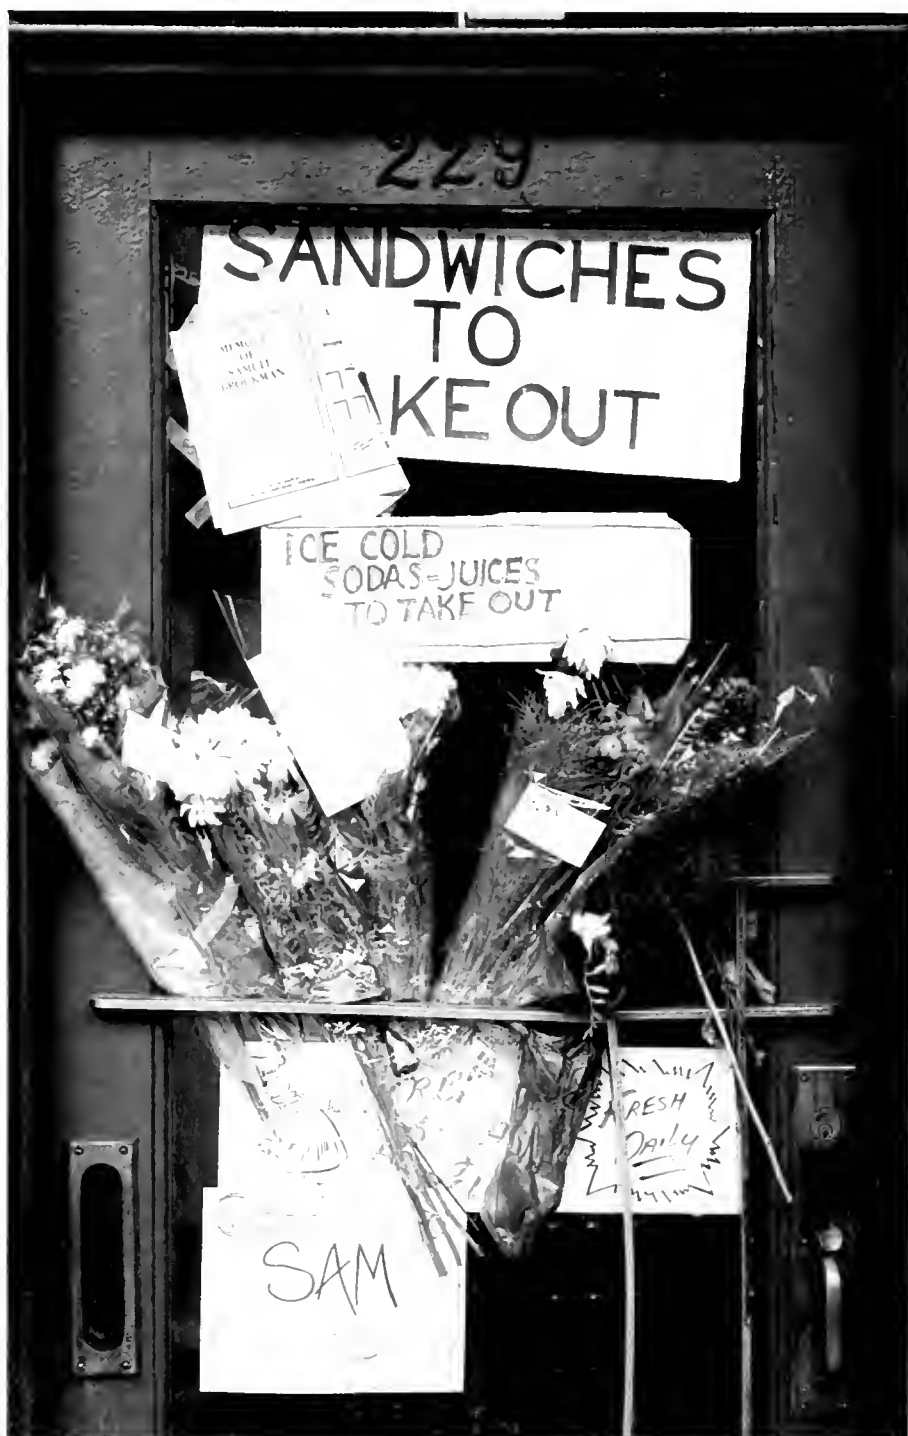 229
SANDWICHES
TO
AKE OUT
OF
SAMUEL
BROCKMAN
ICE COLD
SODAS=JUICES
TO TAKE OUT
FRESH
DAILY
SAM